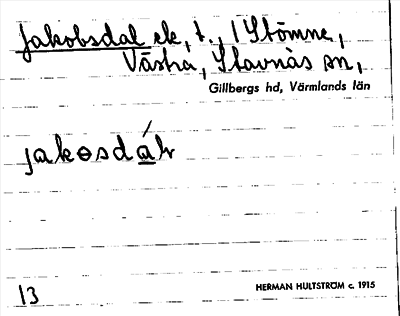 Jakobsdal ek, t., i Stömne,
Västra, Stavnäs sn,
Gillbergs hd, Värmlands län
jakɵsdáḷ
13
HERMAN HULTSTRÖM c. 1915